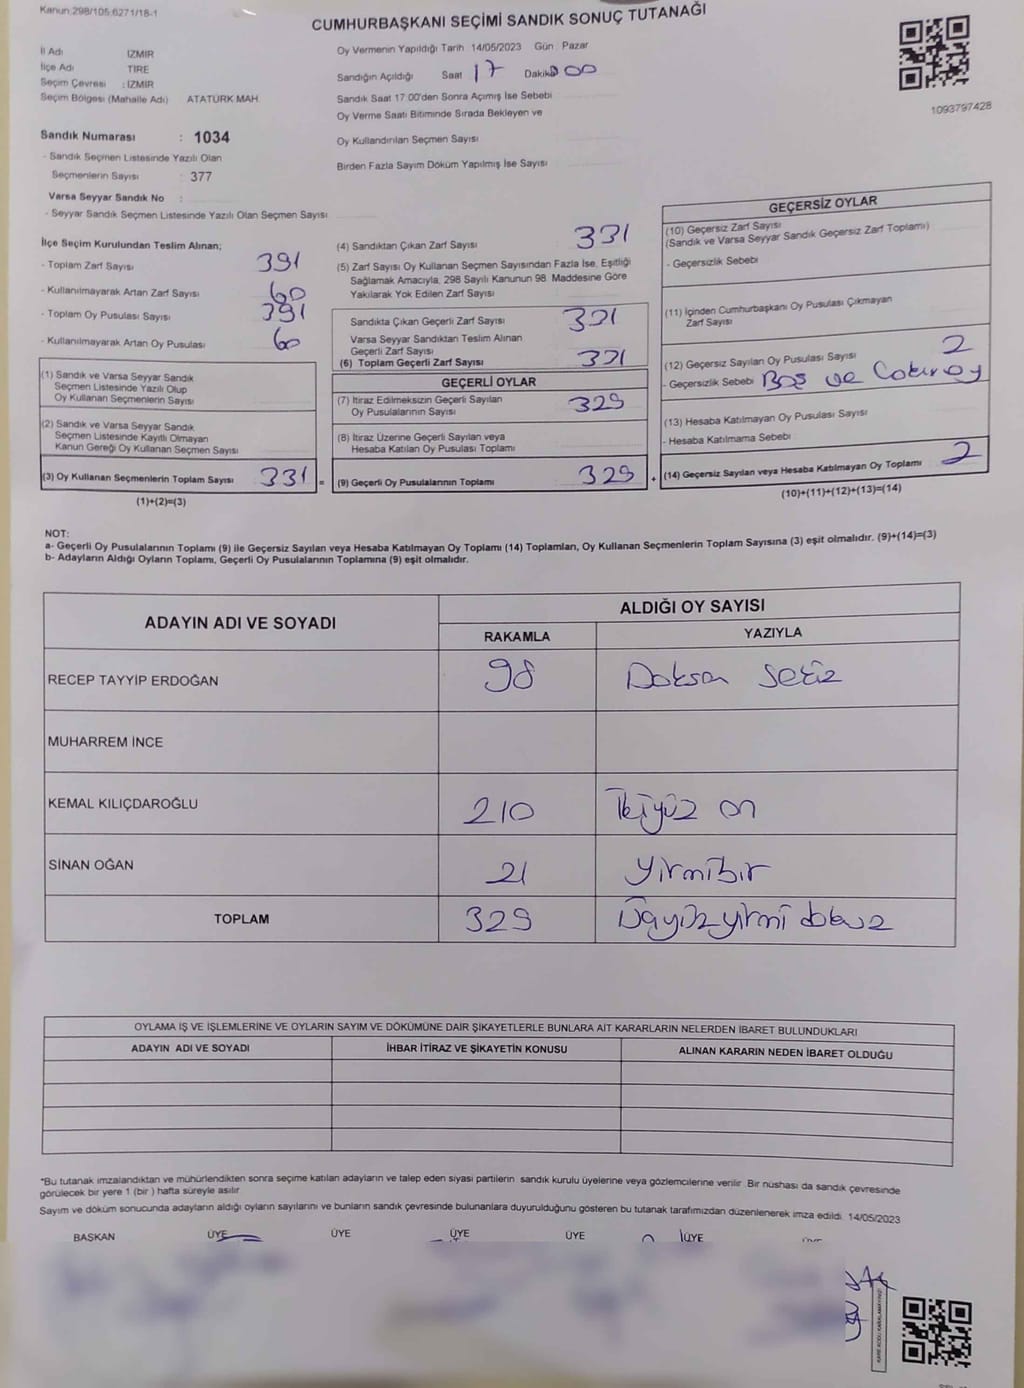 Kanun:298/105;6271/18-1
CUMHURBAŞKANI SEÇİMİ SANDIK SONUÇ TUTANAĞI
İl Adı İZMİR
İlçe Adı TİRE
Seçim Çevresi : İZMİR
Seçim Bölgesi (Mahalle Adı) ATATÜRK MAH.
Sandık Numarası : 1034
- Sandık Seçmen Listesinde Yazılı Olan
Seçmenlerin Sayısı : 377
Varsa Seyyar Sandık No :
- Seyyar Sandık Seçmen Listesinde Yazılı Olan Seçmen Sayısı
Oy Vermenin Yapıldığı Tarih 14/05/2023 Gün : Pazar
Sandığın Açıldığı Saat 17 Dakika 00
Sandık Saat 17:00'den Sonra Açımış İse Sebebi
Oy Verme Saati Bitiminde Sırada Bekleyen ve
Oy Kullandırılan Seçmen Sayısı
Birden Fazla Sayım Döküm Yapılmış İse Sayısı
1093797428
İlçe Seçim Kurulundan Teslim Alınan;
- Toplam Zarf Sayısı 391
- Kullanılmayarak Artan Zarf Sayısı 60
- Toplam Oy Pusulası Sayısı 391
- Kullanılmayarak Artan Oy Pusulası 60
(1) Sandık ve Varsa Seyyar Sandık
Seçmen Listesinde Yazılı Olup
Oy Kullanan Seçmenlerin Sayısı
(2) Sandık ve Varsa Seyyar Sandık
Seçmen Listesinde Kayıtlı Olmayan
Kanun Gereği Oy Kullanan Seçmen Sayısı
(3) Oy Kullanan Seçmenlerin Toplam Sayısı 331 =
(1)+(2)=(3)
(4) Sandıktan Çıkan Zarf Sayısı 331
(5) Zarf Sayısı Oy Kullanan Seçmen Sayısından Fazla İse, Eşitliği
Sağlamak Amacıyla, 298 Sayılı Kanunun 98. Maddesine Göre
Yakılarak Yok Edilen Zarf Sayısı
Sandıkta Çıkan Geçerli Zarf Sayısı 331
Varsa Seyyar Sandıktan Teslim Alınan
Geçerli Zarf Sayısı
(6) Toplam Geçerli Zarf Sayısı 331
GEÇERLİ OYLAR
(7) İtiraz Edilmeksizin Geçerli Sayılan
Oy Pusulalarının Sayısı 329
(8) İtiraz Üzerine Geçerli Sayılan veya
Hesaba Katılan Oy Pusulası Toplamı
(9) Geçerli Oy Pusulalarının Toplamı 329 +
GEÇERSİZ OYLAR
(10) Geçersiz Zarf Sayısı
(Sandık ve Varsa Seyyar Sandık Geçersiz Zarf Toplamı)
- Geçersizlik Sebebi
(11) İçinden Cumhurbaşkanı Oy Pusulası Çıkmayan
Zarf Sayısı
(12) Geçersiz Sayılan Oy Pusulası Sayısı 2
- Geçersizlik Sebebi Boş ve
(13) Hesaba Katılmayan Oy Pusulası Sayısı
- Hesaba Katılmama Sebebi
(14) Geçersiz Sayılan veya Hesaba Katılmayan Oy Toplamı 2
(10)+(11)+(12)+(13)=(14)
NOT:
a- Geçerli Oy Pusulalarının Toplamı (9) ile Geçersiz Sayılan veya Hesaba Katılmayan Oy Toplamı (14) Toplamları, Oy Kullanan Seçmenlerin Toplam Sayısına (3) eşit olmalıdır. (9)+(14)=(3)
b- Adayların Aldığı Oyların Toplamı, Geçerli Oy Pusulalarının Toplamına (9) eşit olmalıdır.
ADAYIN ADI VE SOYADI
ALDIĞI OY SAYISI
RAKAMLA YAZIYLA
RECEP TAYYİP ERDOĞAN 98 Doksan Sekiz
MUHARREM İNCE
KEMAL KILIÇDAROĞLU 210 İkiyüz on
SİNAN OĞAN 21 Yirmibir
TOPLAM 329 Üçyüzyirmi dokuz
OYLAMA İŞ VE İŞLEMLERİNE VE OYLARIN SAYIM VE DÖKÜMÜNE DAİR ŞİKAYETLERLE BUNLARA AİT KARARLARIN NELERDEN İBARET BULUNDUKLARI
ADAYIN ADI VE SOYADI İHBAR İTİRAZ VE ŞİKAYETİN KONUSU ALINAN KARARIN NEDEN İBARET OLDUĞU
*Bu tutanak imzalandıktan ve mühürlendikten sonra seçime katılan adayların ve talep eden siyasi partilerin sandık kurulu üyelerine veya gözlemcilerine verilir. Bir nüshası da sandık çevresinde
görülecek bir yere 1 (bir ) hafta süreyle asılır.
Sayım ve döküm sonucunda adayların aldığı oyların sayılarını ve bunların sandık çevresinde bulunanlara duyurulduğunu gösteren bu tutanak tarafımızdan düzenlenerek imza edildi. 14/05/2023
BAŞKAN ÜYE ÜYE ÜYE ÜYE ÜYE